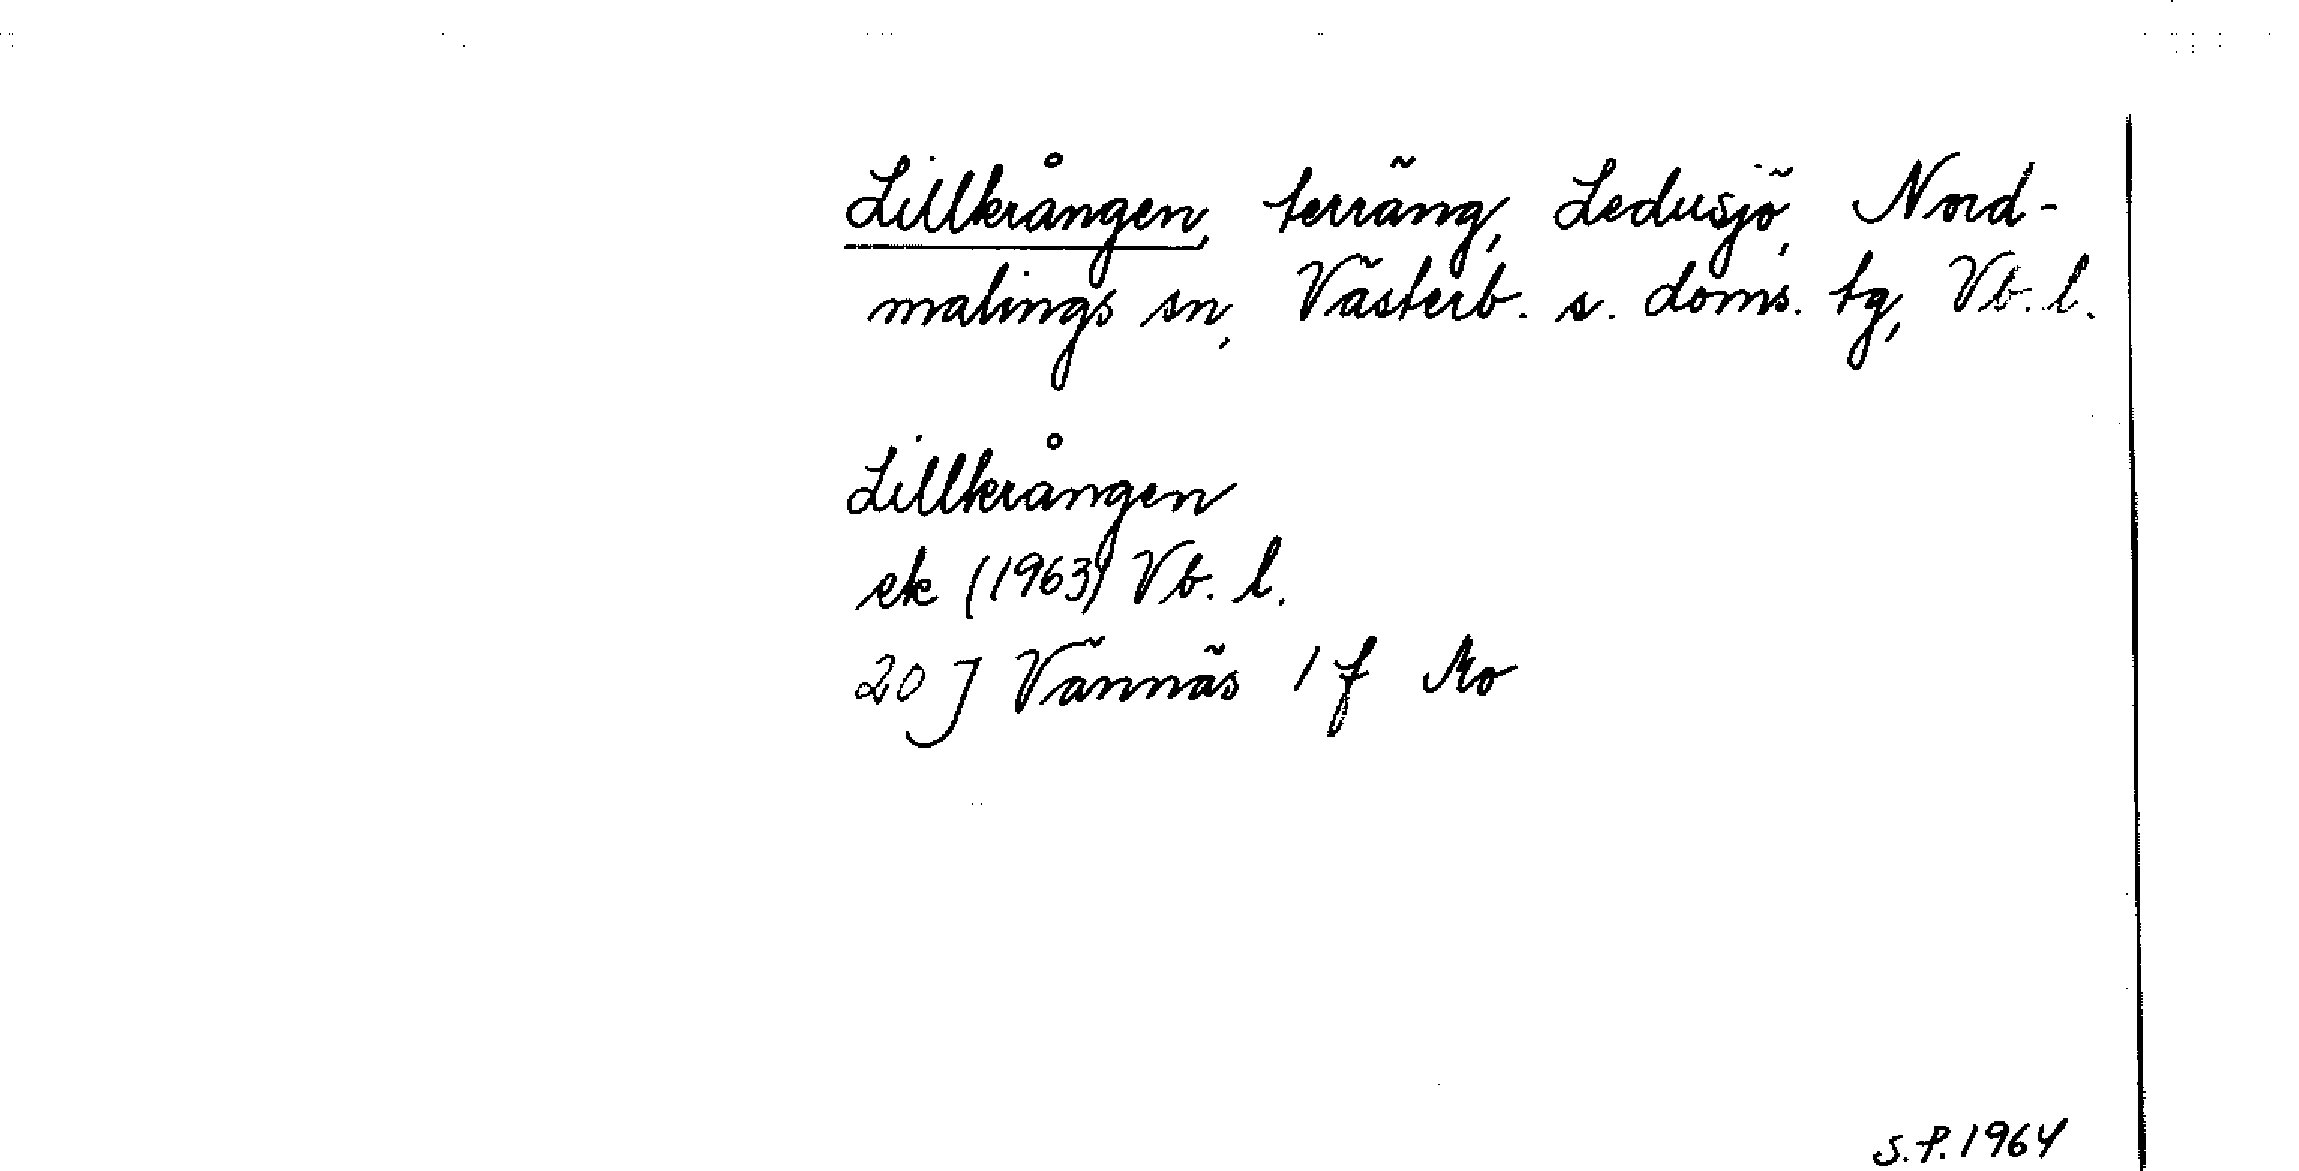 Lillkrången, terräng, Ledusjö, Nord-
malings sn, Västerb. s. doms. tg, Vb. l.
Lillkrången
ek (1963) Vb. l.
20 J Vännäs 1 f Mo
S.P. 1964